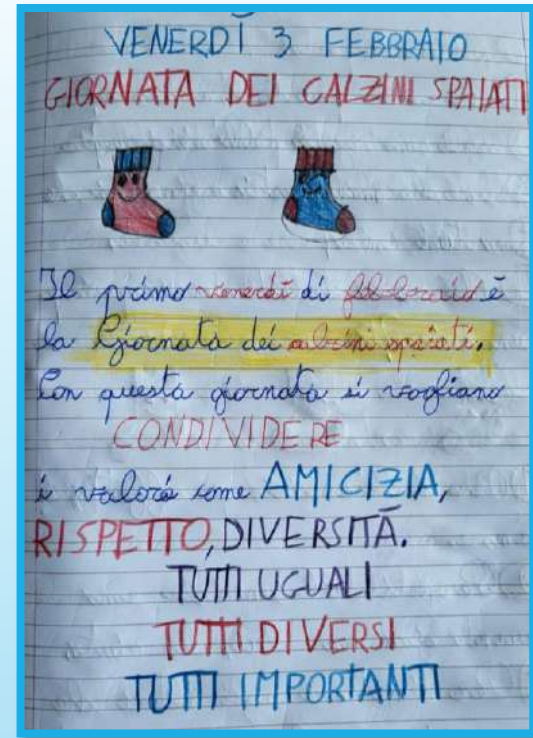 VENERDÌ 3 FEBBRAIO
GIORNATA DEI CALZINI SPAIATI
Il primo venerdì di febbraio è
la Giornata dei calzini spaiati.
Con questa giornata si vogliono
CONDIVIDERE
i valori come AMICIZIA,
RISPETTO, DIVERSITÀ.
TUTTI UGUALI
TUTTI DIVERSI
TUTTI IMPORTANTI